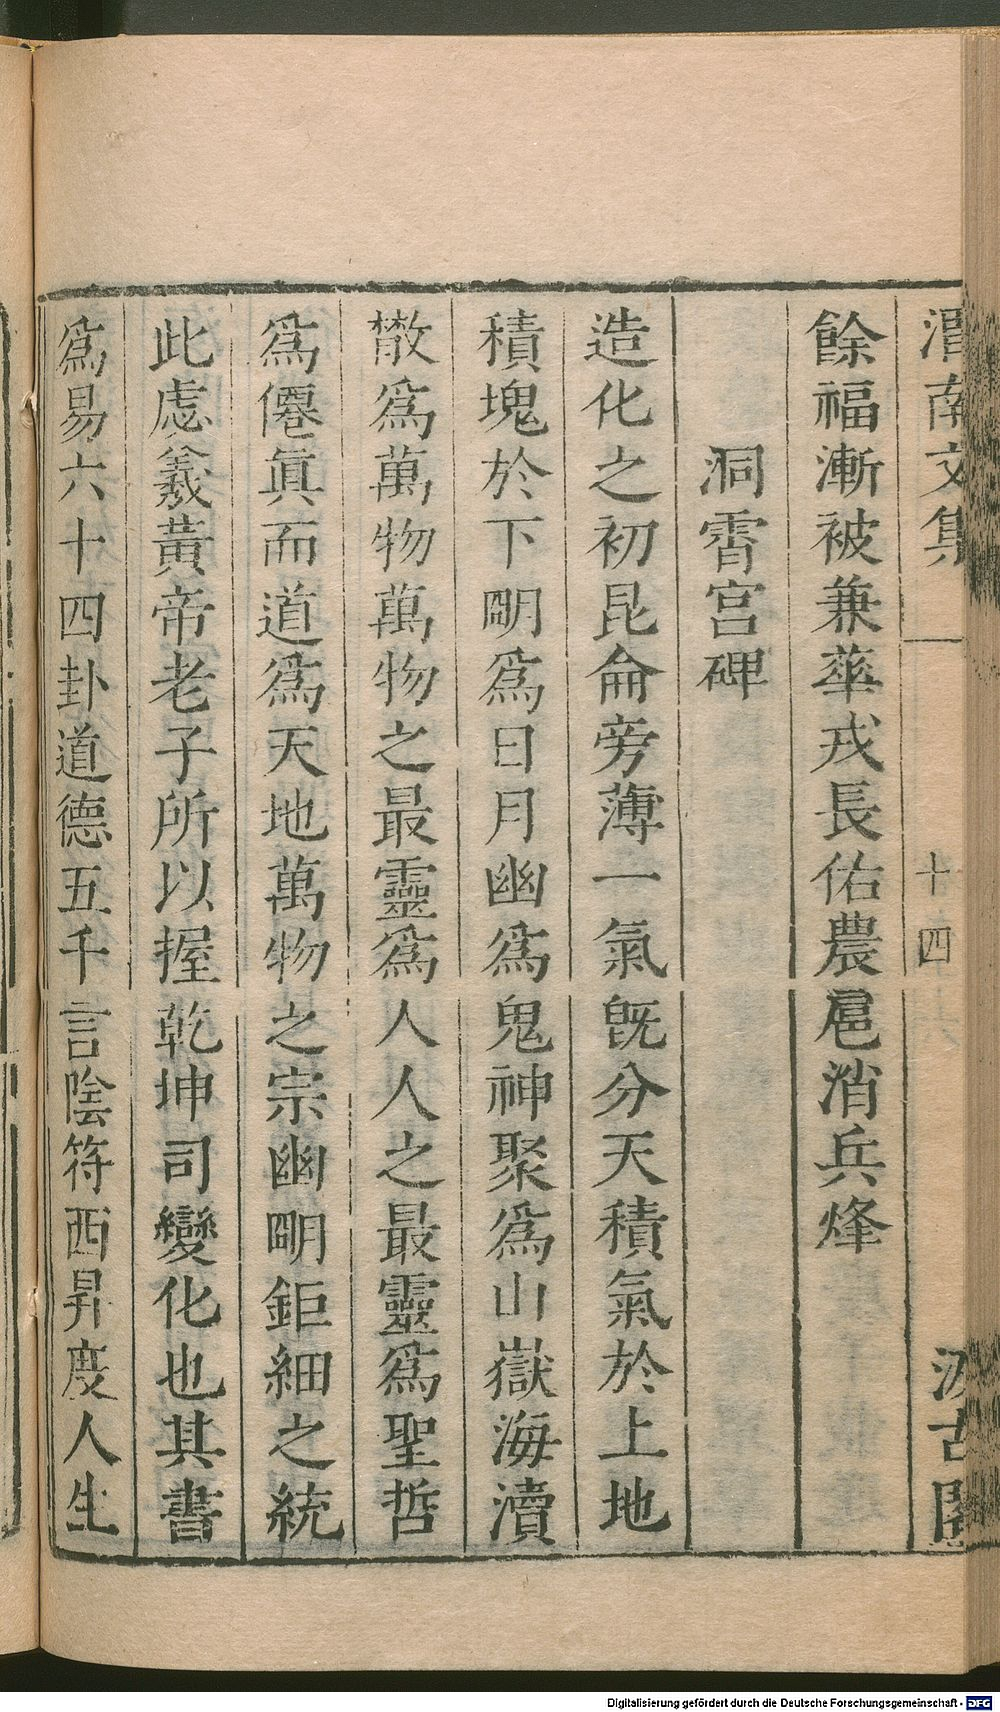 渭南文集 十四 汲古閣
餘福漸被兼華戎長佑農扈消兵烽
洞霄宮碑
造化之初昆侖旁薄一氣旣分天積氣於上地
積塊於下朙爲日月幽爲鬼神聚爲山嶽海瀆
㪚爲萬物萬物之最靈爲人人之最靈爲聖哲
爲僊眞而道爲天地萬物之宗幽朙鉅細之統
此虙羲黃帝老子所以握乾坤司變化也其書
爲易六十四卦道德五千言陰符西昇度人生
Digitalisierung gefördert durch die Deutsche Forschungsgemeinschaft - DFG